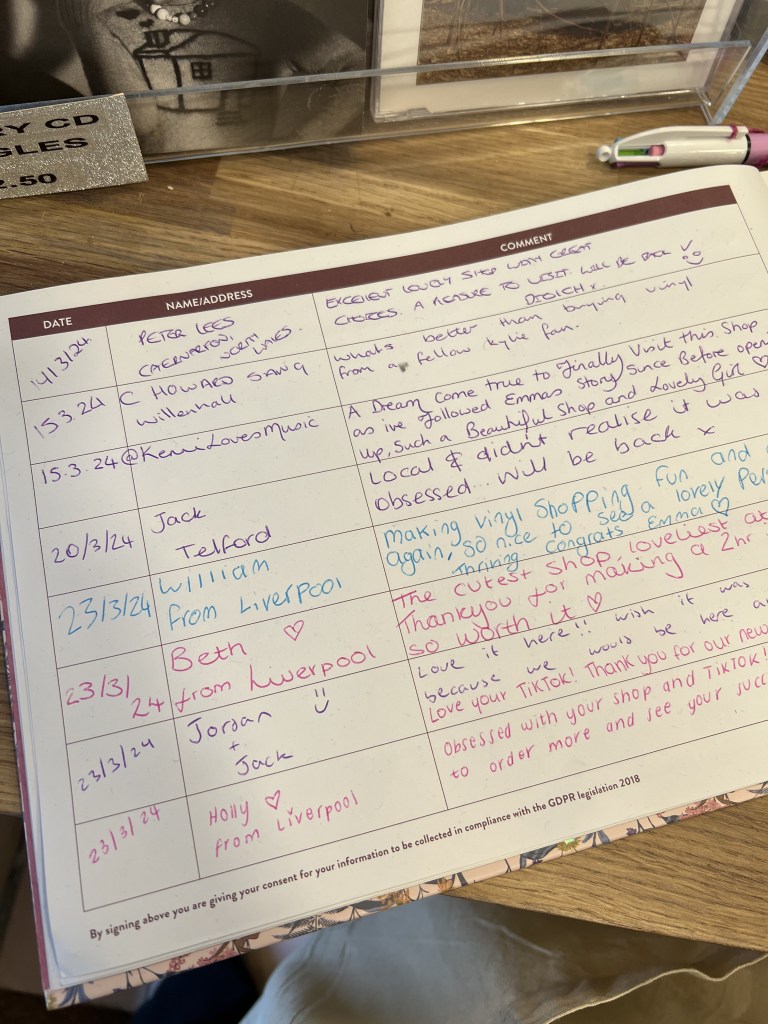 RY CD
GLES
2.50
DATE NAME/ADDRESS COMMENT
14/3/24 PETER LEES
CAERNARFON,
NORTH WALES.
EXCELLENT LOVELY SHOP WITH GREAT
CHOICES. A PLEASURE TO VISIT. WILL BE BACK
DIOLCH x.
15.3.24 C HOWARD SANG
Willenhall
whats better than buying vinyl
from a fellow kylie fan.
15.3.24 @KerriLovesMusic
A Dream come true to finally Visit this Shop
as ive followed Emmas Story Since Before open
up, Such a Beautiful Shop and Lovely Girl ♡
20/3/24 Jack
Telford
Local & didn't realise it was
obsessed... will be back x
23/3/24 William
from Liverpool
making vinyl shopping fun and
again, so nice to see a lovely
thriving congrats Emma ♡
23/3/
24 Beth ♡
from Liverpool
The cutest shop, loveliest
Thankyou for making a 2hr
so worth it ♡
23/3/24 Jordan
+
Jack
Love it here!! wish it was
because we would be here
Love your TikTok! Thank you for our new
23/3/24 Holly ♡
from Liverpool
Obsessed with your shop and TikTok!
to order more and see your
By signing above you are giving your consent for your information to be collected in compliance with the GDPR legislation 2018